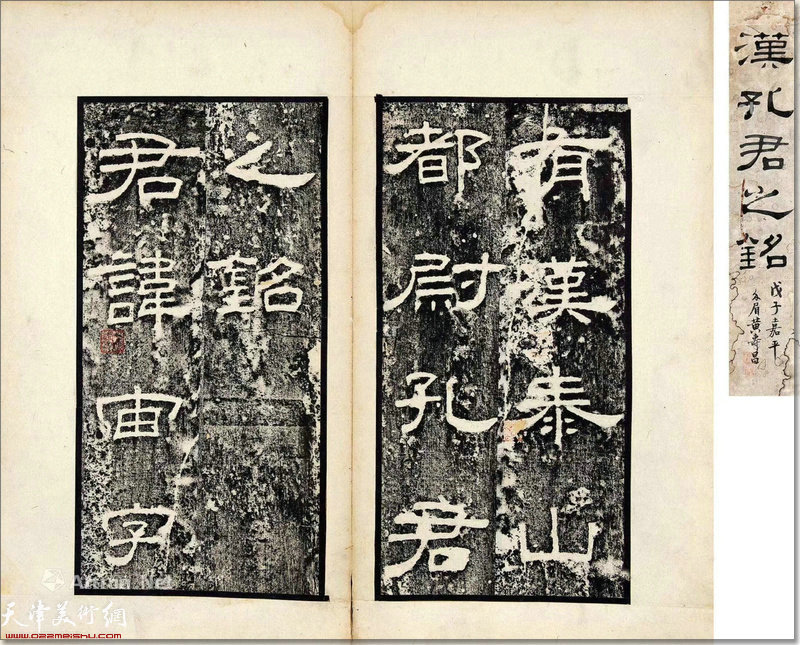 有漢泰山
都尉孔君
之銘
君諱宙字
漢孔君之銘
戊子嘉平
黄壽昌
Artron.Net
天津美術網
www.022meishu.com